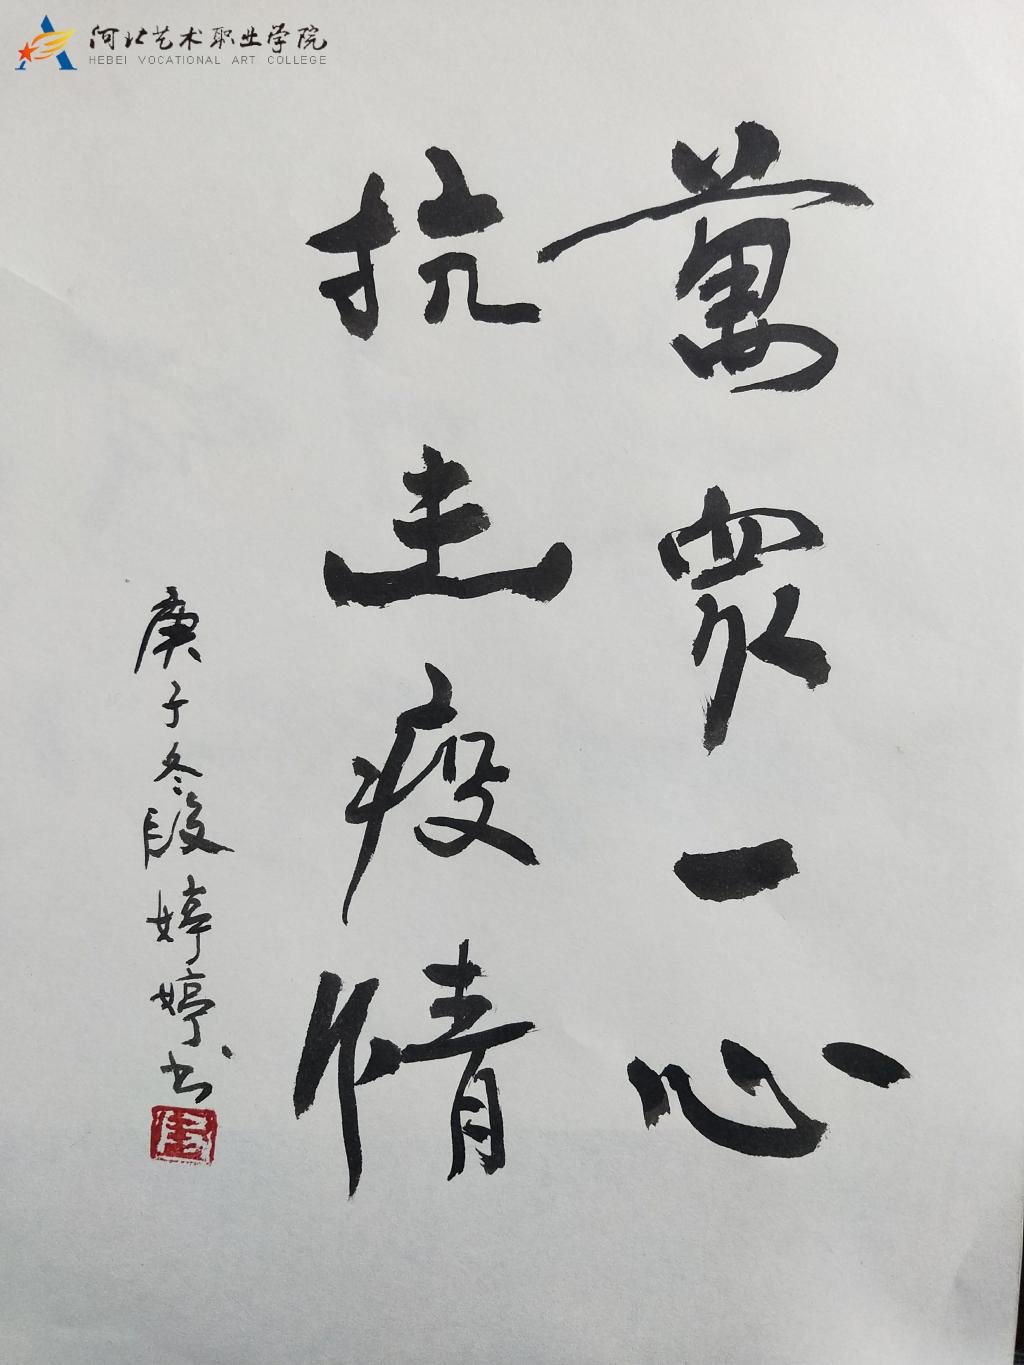 河北艺术职业学院
HEBEI VOCATIONAL ART COLLEGE
萬眾一心
抗击疫情
庚子冬段婷婷书